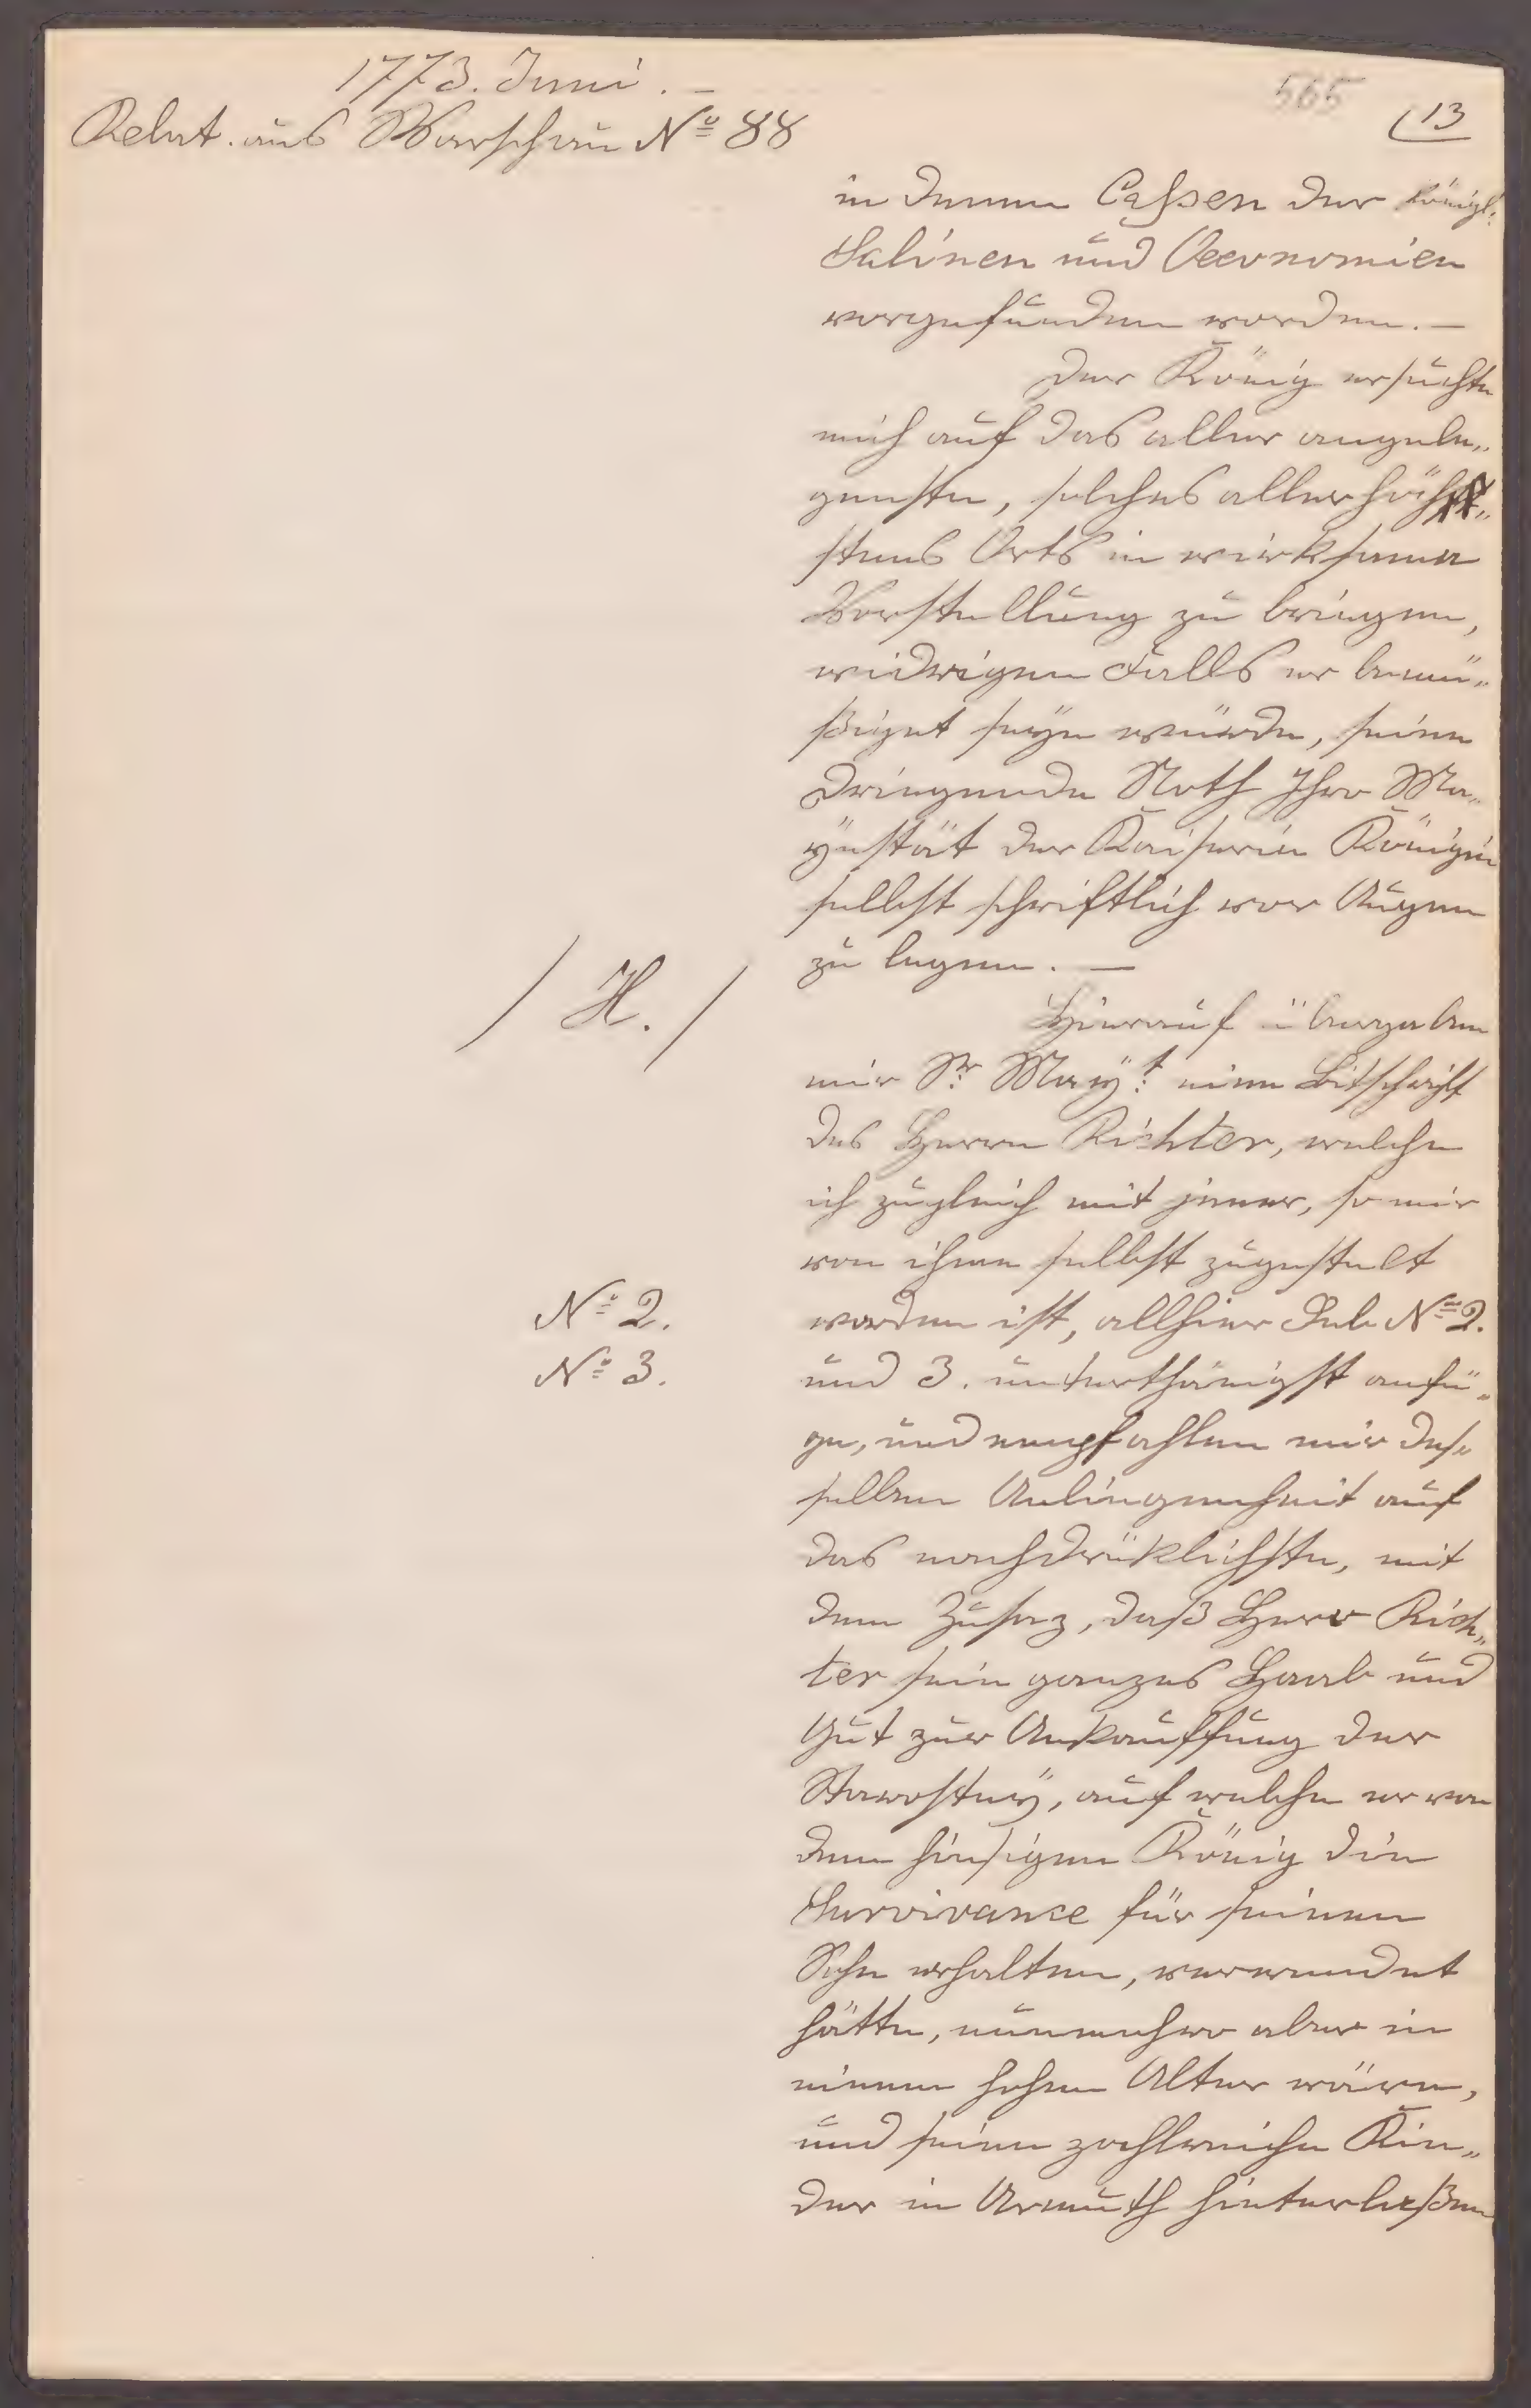 1773. Juni. –
Relat. aus Warschau No 88
565
13
in denen Caßen der königl:
Salinen und Oeconomien
vorgefunden worden. –
Der König ersuchte
mich auf das aller angele„
genste, solches allerhöch„
stens Orts in wirksame
Vorstellung zu bringen,
widrigen Falls er bemü„
ßiget seÿn würde, seine
dringende Noth Ihro Ma„
ÿestät der Kaiserin Königin
selbst schriftlich vor Augen
zu legen. –
/ H. /
Hierauf übergaben
mir Sr Maÿ:t eine Bitschrift
des Herrn Richter, welche
ich zugleich mit jener, so mir
von ihme selbst zugestelt
No 2.
worden ist, allhier Sub No 2.
No 3.
und 3. unterthänigst anfü„
ge, und empfahlen mir des„
selben Anliegenheit auf
das nachdrüklichste, mit
dem Zusaz, daß Herr Rich„
ter sein ganzes Haab und
Gut zur Ankauffung der
Starosteÿ, auf welche er von
dem hiesigen König die
Survivance für seinen
Sohn erhalten, verwendet
hätte, nunmehro aber in
einem hohen Alter wäre,
und seine zahlreiche Kin„
der in Armuth hinterließen